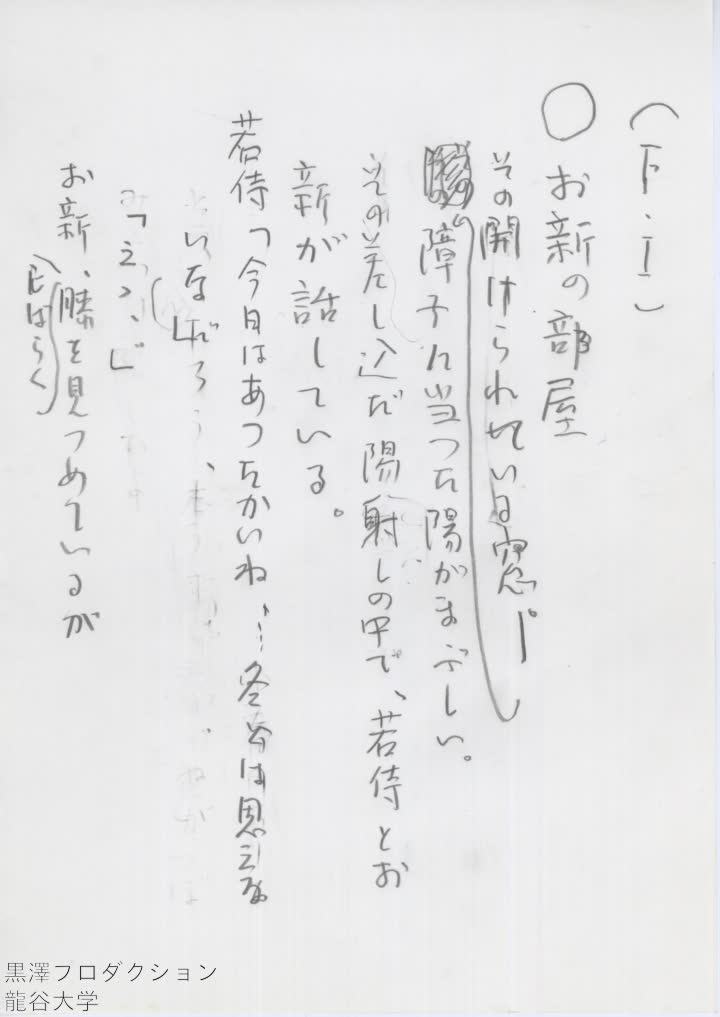 (下・I)
○お新の部屋
その開けられている窓。
障子に当つた陽がまぶしい。
その差し込だ陽射しの中で、若侍とお
新が話している。
若侍「今日はあつたかいね…冬とは思えな
いな」
「えゝ」
お新、膝を見つめているが
しばらく
黒澤フロダクション
龍谷大学